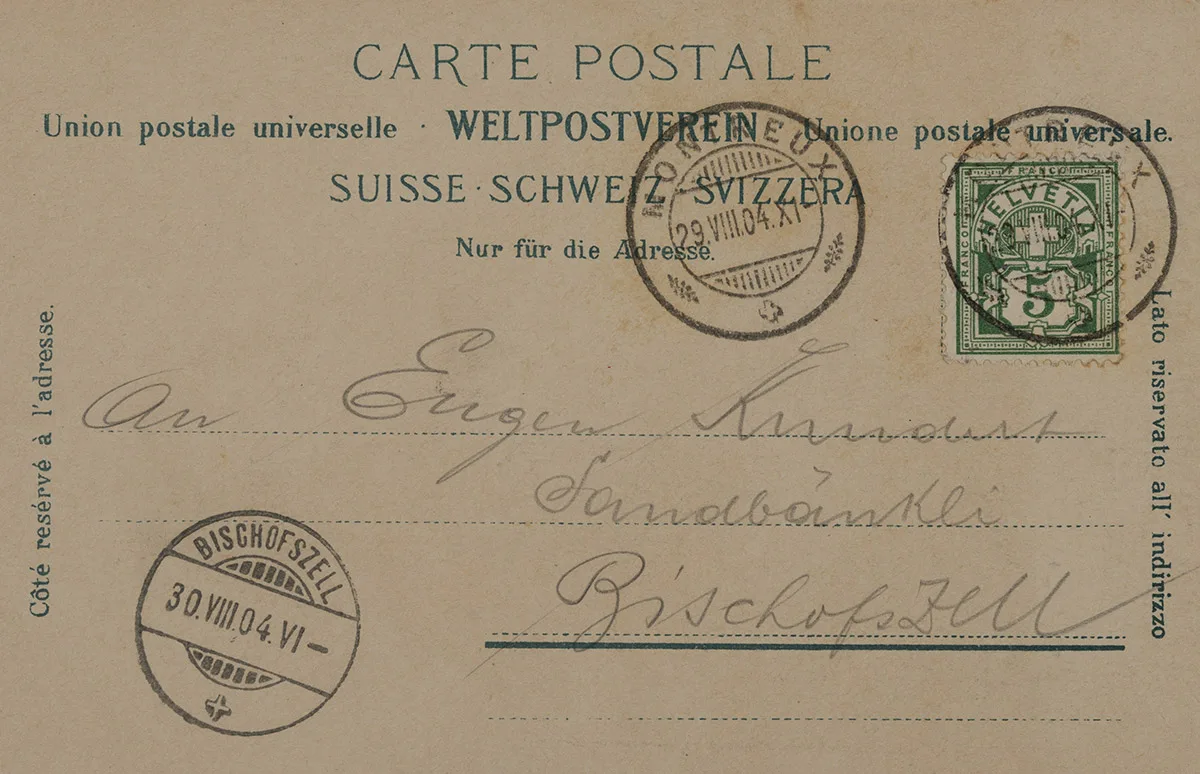 CARTE POSTALE
Union postale universelle · WELTPOSTVEREIN · Unione postale universale.
SUISSE · SCHWEIZ · SVIZZERA
Nur für die Adresse.
MONTREUX
29.VIII.04.XI–
MONTREUX
FRANCO
FRANCO
FRANCO
HELVETIA
5
Côté resérvé à l'adresse.
Lato riservato all' indirizzo
An Eugen Kundert
Sandbänkli
Bischofszell
BISCHOFSZELL
30.VIII.04.VI–